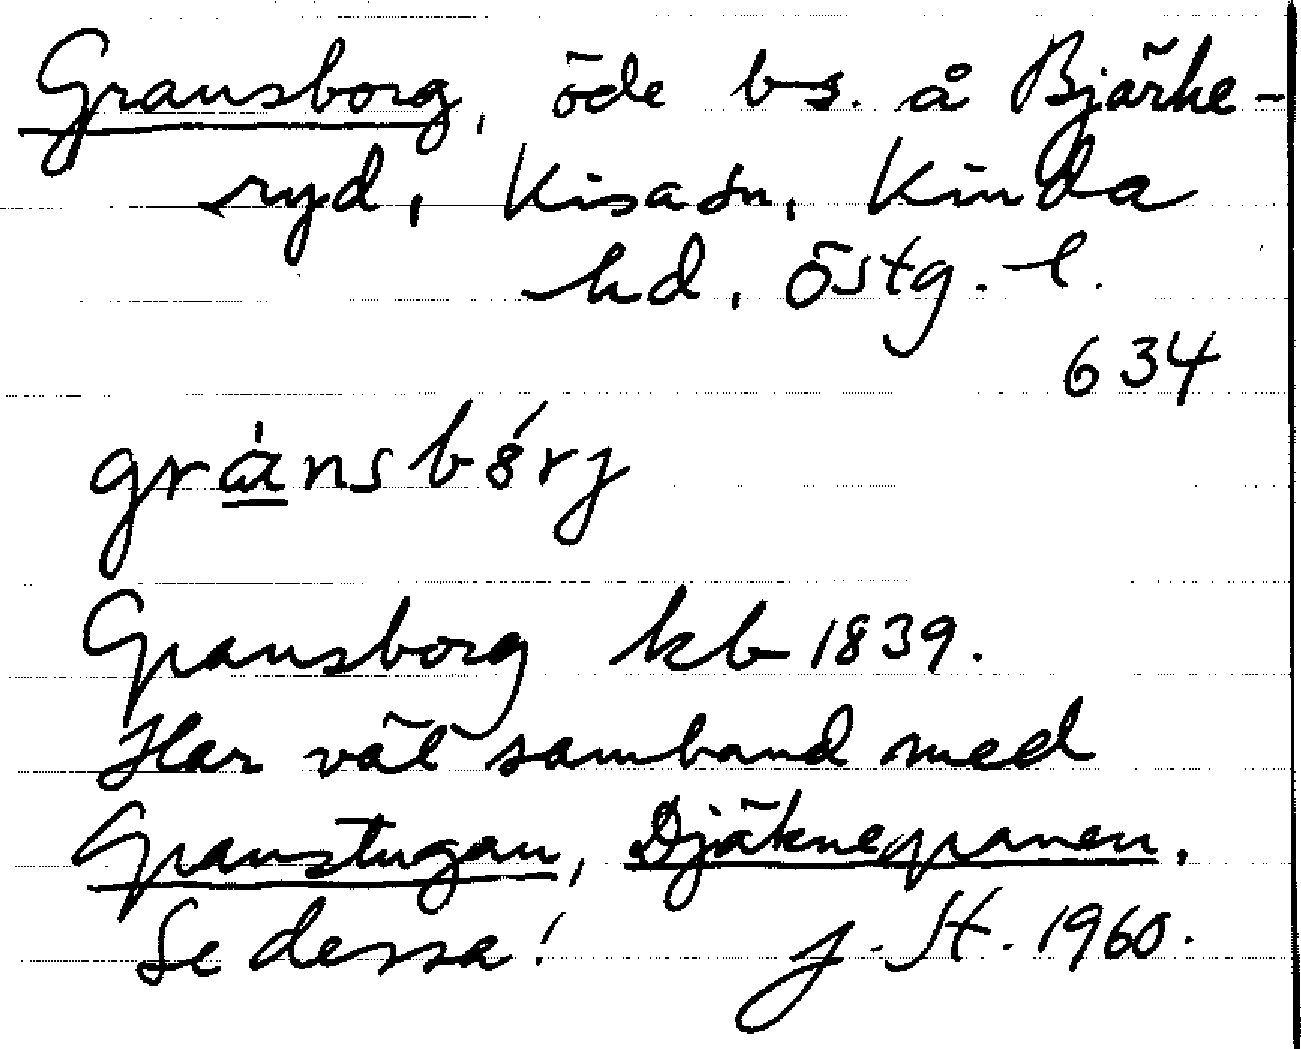 Gransborg, öde bs. å Bjärke-
ryd, Kisa sn, Kinda
hd, Östg. l.
634
grànsbórj
Gransborg kb 1839.
Har väl samband med
Granstugan, Djäknegranen.
Se dessa! J. St. 1960.